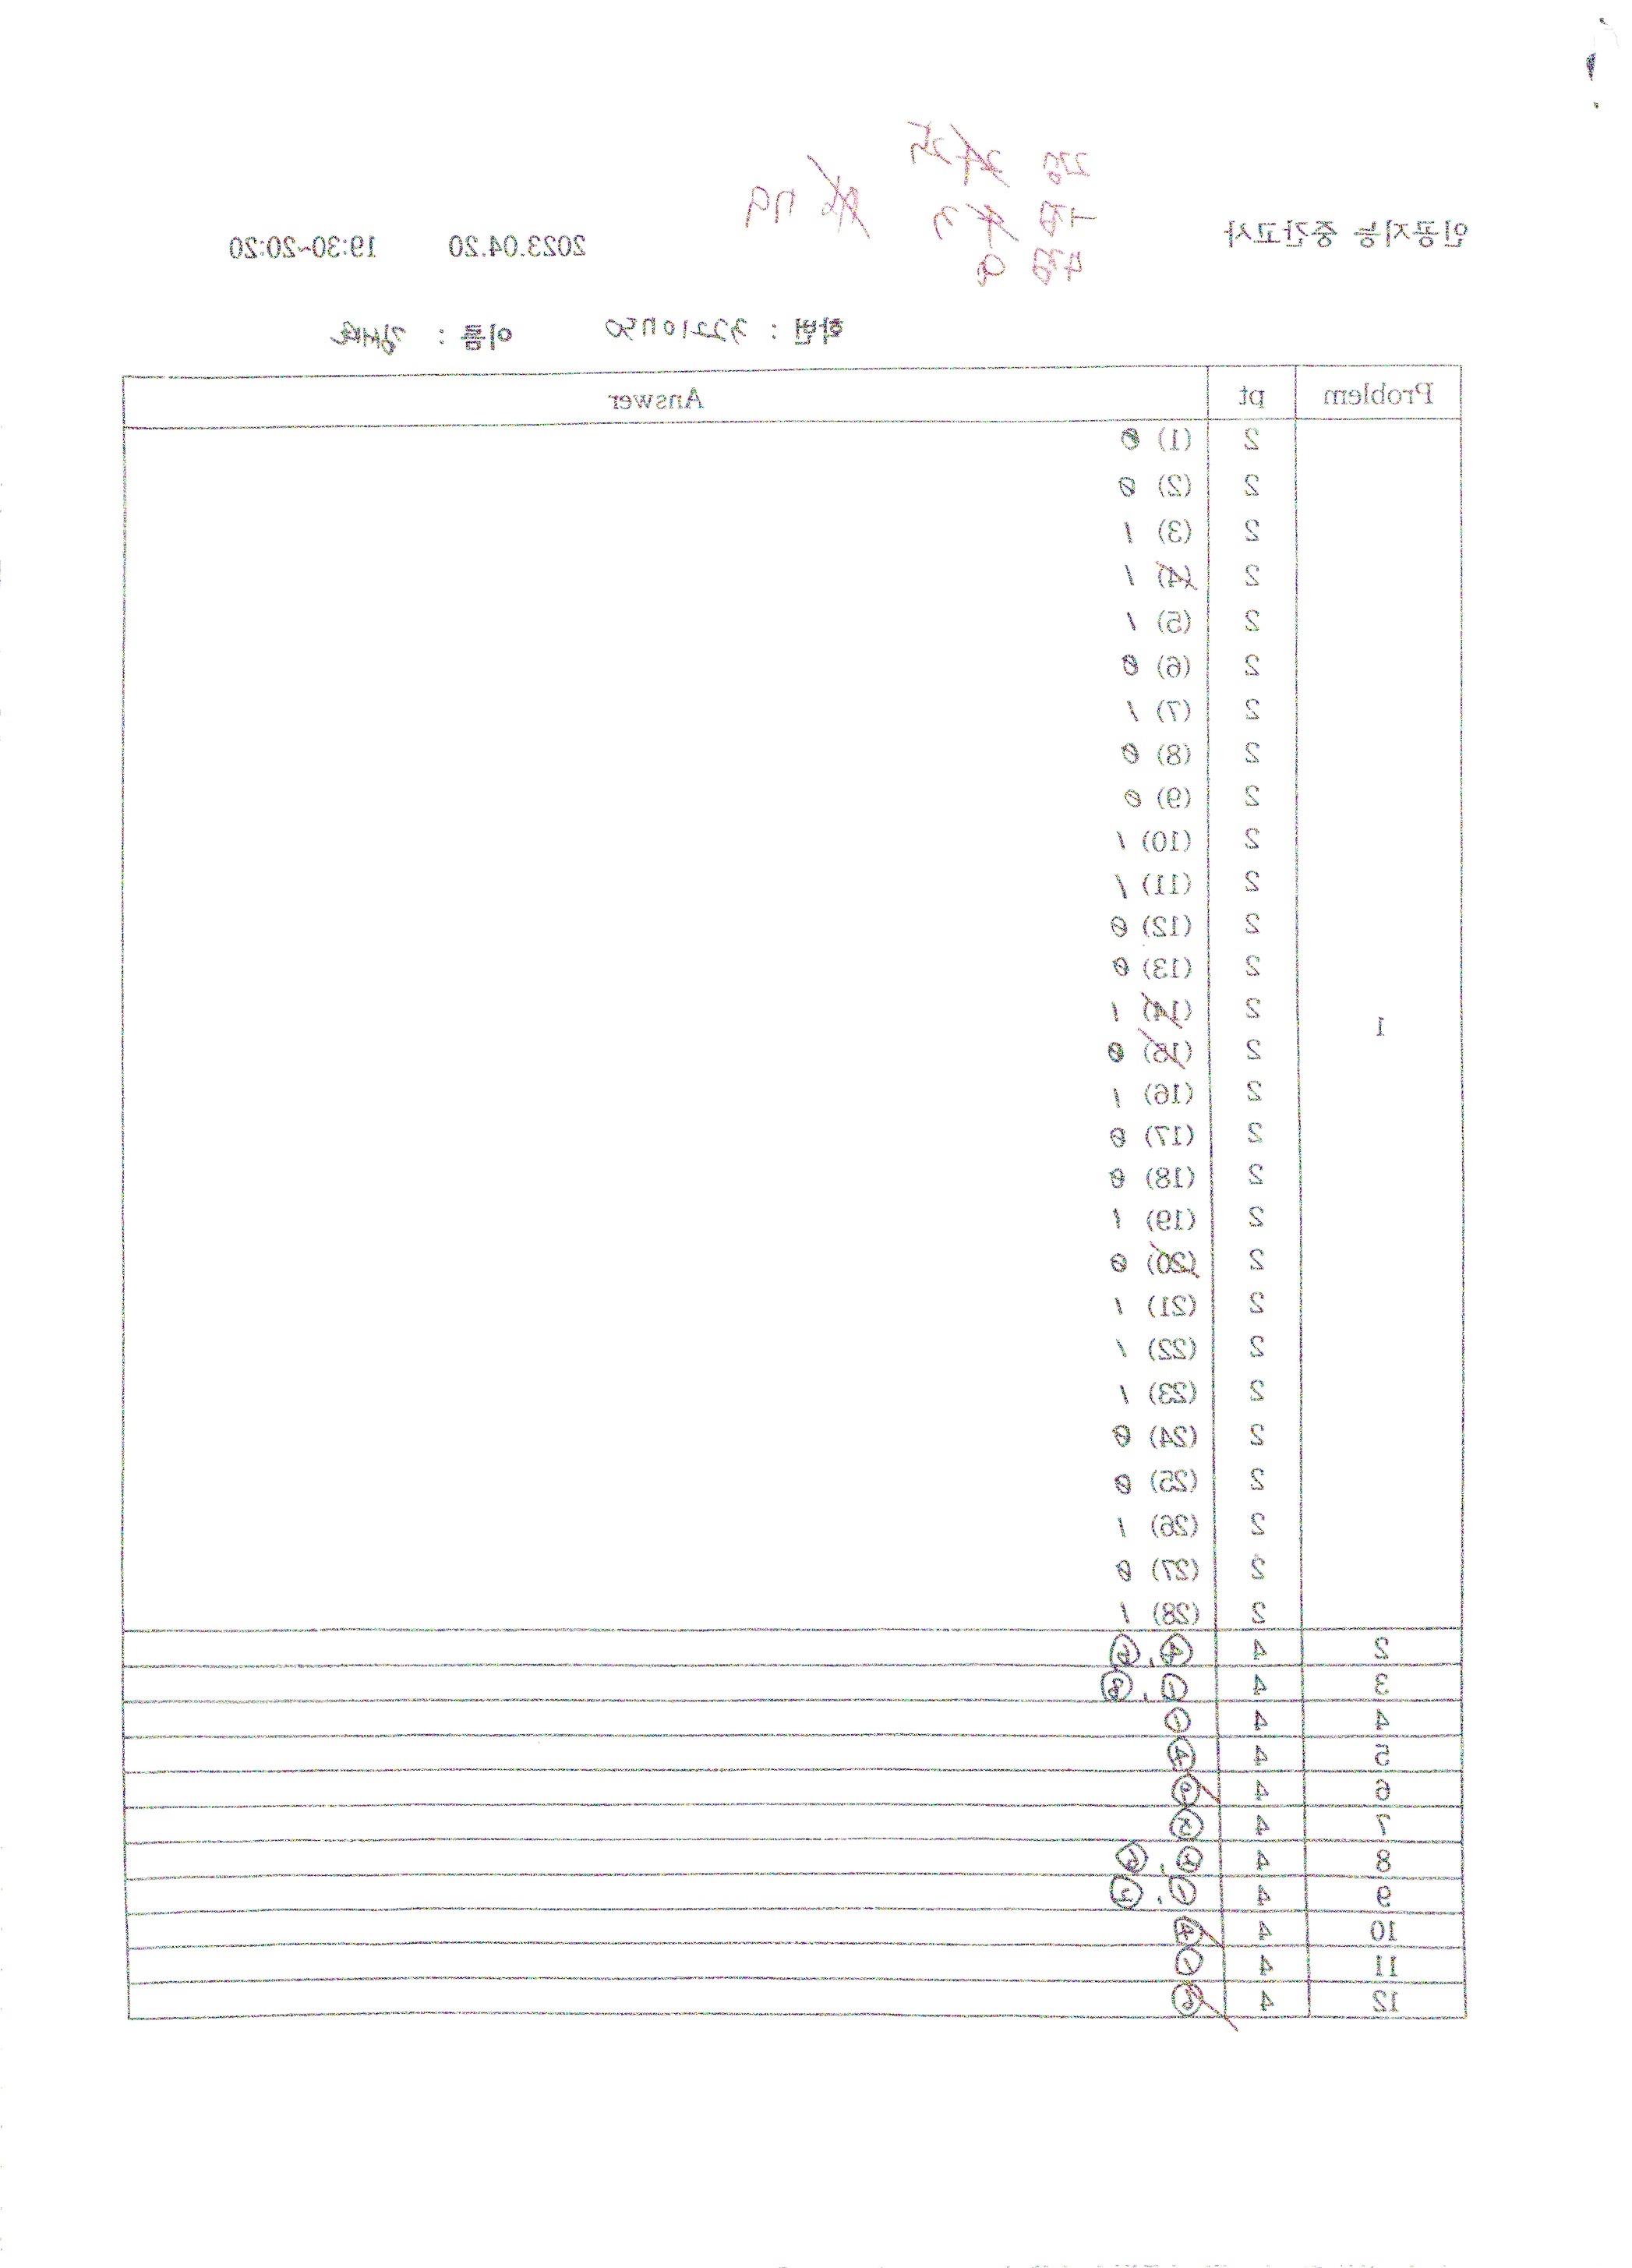 인공지능 중간고사 2023.04.20 19:30~20:20
2점 25
1점 3
4점
79
학번 : 32210750 이름 :
Problem pt Answer
1
2 (1) 0
2 (2) 0
2 (3) 1
2 (4) 1
2 (5) 1
2 (6) 0
2 (7) 1
2 (8) 0
2 (9) 0
2 (10) 1
2 (11) 1
2 (12) 0
2 (13) 0
2 (14) 1
2 (15) 0
2 (16) 1
2 (17) 0
2 (18) 0
2 (19) 1
2 (20) 0
2 (21) 1
2 (22) 1
2 (23) 1
2 (24) 0
2 (25) 0
2 (26) 1
2 (27) 0
2 (28) 1
2 4 ④, ⑥
3 4 ①, ⑧
4 4 ①
5 4 ④
6 4
7 4 ③
8 4 ②,
9 4 ①, ②
10 4 ④
11 4 ①
12 4 ⑥